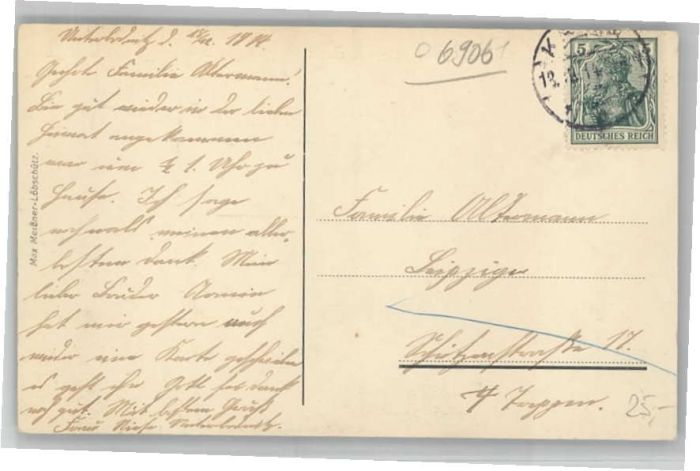 Geehrte Familie Altermann!
Bin gut wieder in der lieben
Heimat angekommen
war um ½ 1. Uhr zu
Hause. Ich sage
nochmals meinen aller-
besten Dank. Mein
lieber Bruder Armin
hat mir gestern auch
wieder eine Karte geschrieben
es geht ihm Gott sei dank
noch gut. Mit bestem Gruß
Frau
Max Meißner-Löbschütz.
06906
5 5
DEUTSCHES REICH
Familie Altermann
Leipzig
Schützenstraße 17.
4 Treppen.
25,-